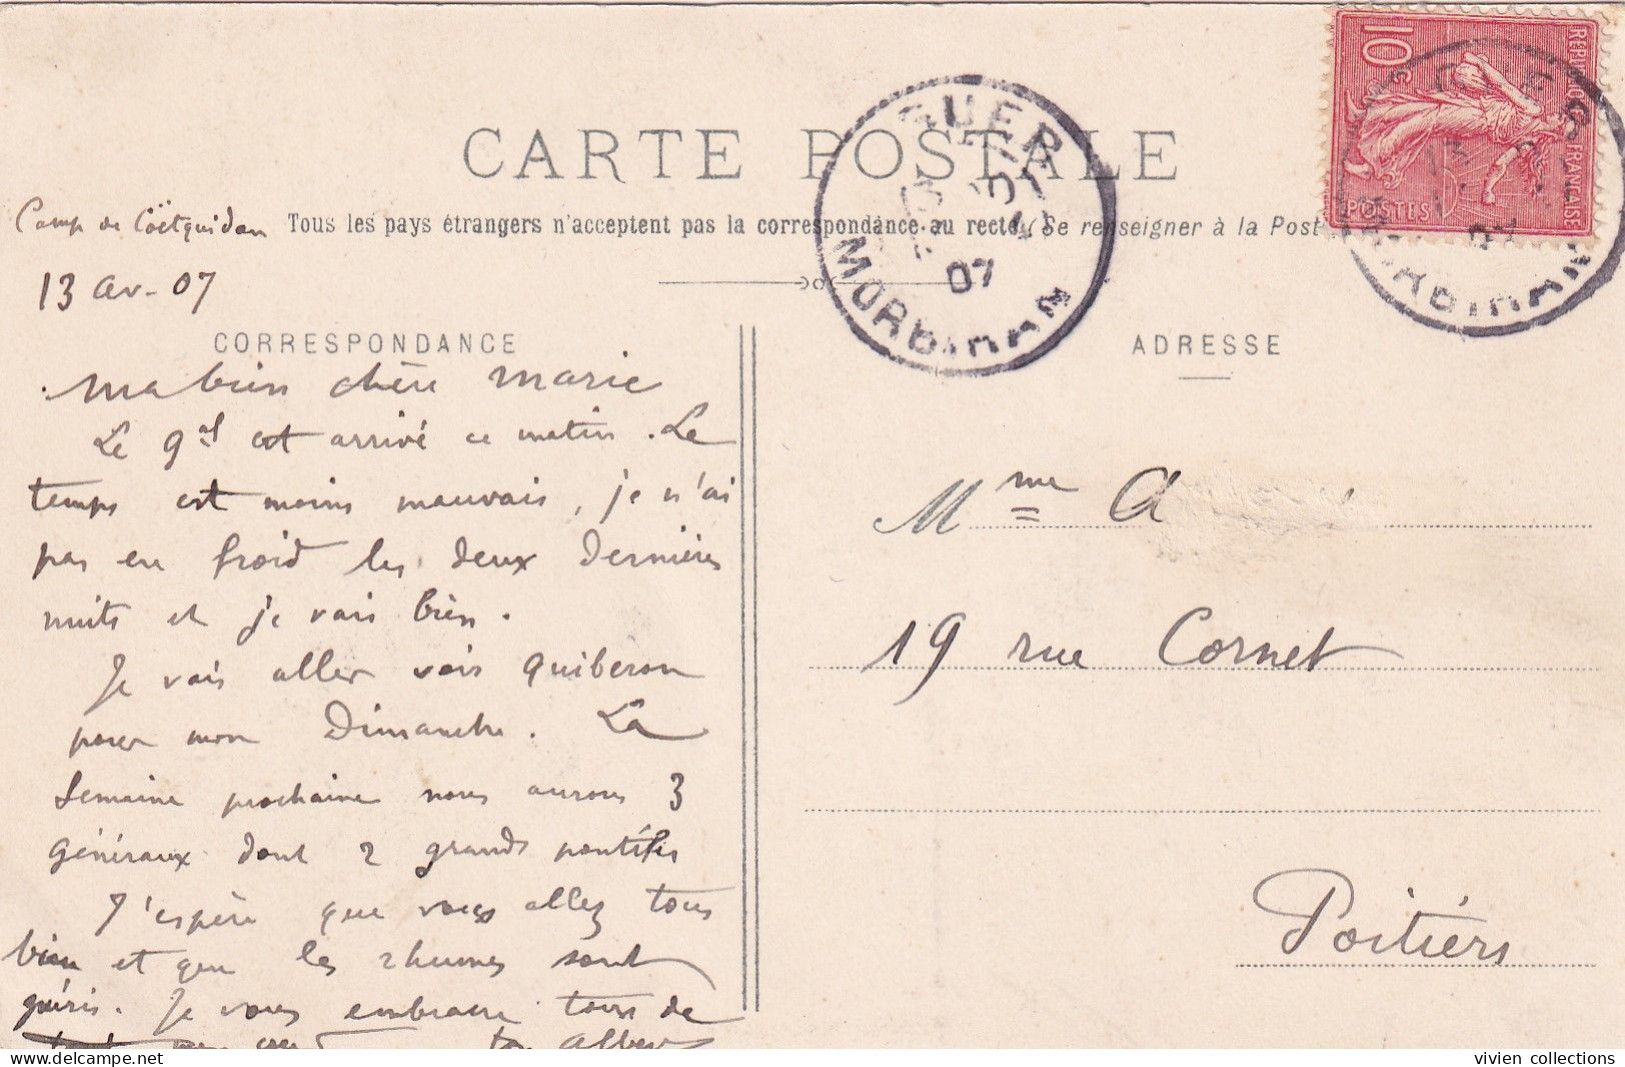 CARTE POSTALE
Camp de Cöetquidan
Tous les pays étrangers n'acceptent pas la correspondance au recto (Se renseigner à la Post
13 av - 07
GUER
07
MORBIHAN
10c
REPUBLIQUE FRANÇAISE
POSTES
GUER
13
07
MORBIHAN
CORRESPONDANCE
ma bien chère Marie
Le gal est arrivé ce matin. Le
temps est moins mauvais, je n'ai
pas eu froid les deux dernières
nuits et je vais bien.
Je vais aller voir Quiberon
pour mon Dimanche. La
Semaine prochaine nous aurons 3
généraux dont 2 grands pontifes
J'espère que vous allez tous
bien et que les rhumes sont
guéris. Je vous embrasse tous de
tout mon ton Albert
ADRESSE
Mme A
19 rue Cornet
Poitiers
delcampe.net
vivien collections